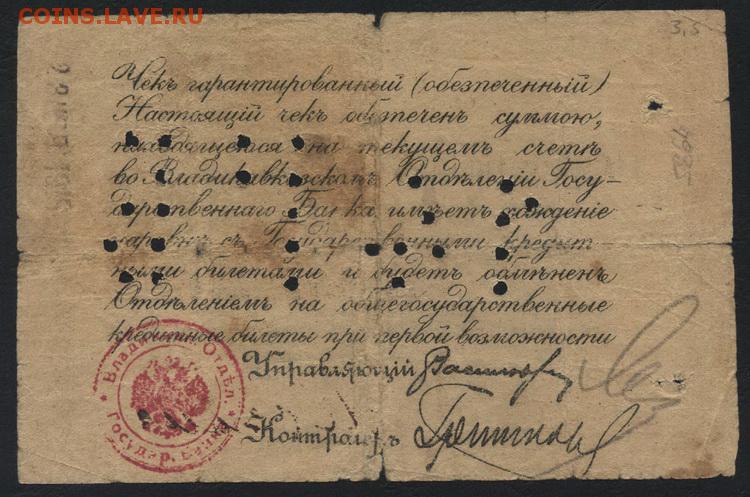 COINS.LAVE.RU
3,5
Чекъ гарантированный (обезпеченный)
Настоящій чекъ обезпеченъ суммою,
находящеюся на текущемъ счетѣ
во Владикавказскомъ Отдѣленіи Госу-
дарственнаго Банка, имѣетъ хожденіе
наравнѣ съ Государственными кредит
ными билетами и будетъ обмѣненъ
Отдѣленіемъ на общегосударственные
кредитные билеты при первой возможности
Управляющій
Контролеръ
Влади Отдѣл.
Государ. Банка